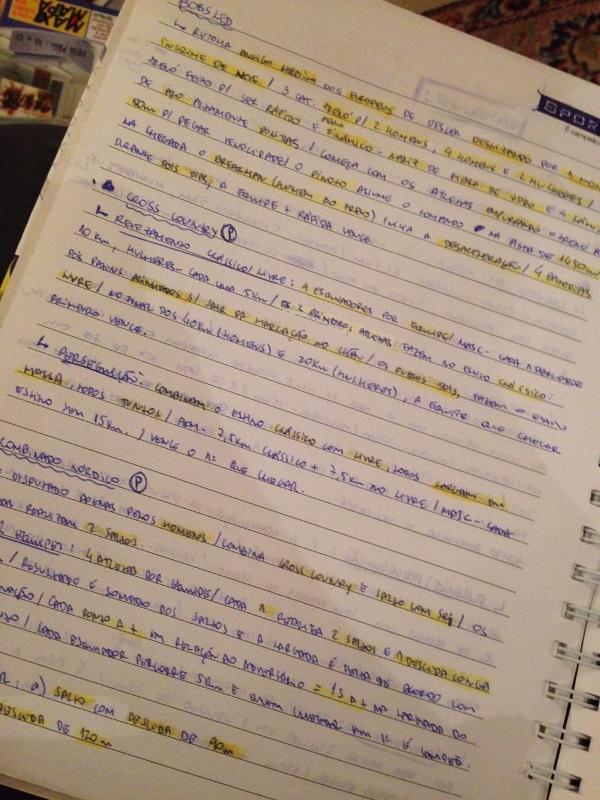 BOBSLED
↳ RETOMA ANTIGO HÁBITO DOS EUROPEUS DE DESCER DESLIZANDO POR 1 MON
ENCOSTA DE NEVE / 3 CAT. TRENÓ P/ 2 HOMENS, 4 HOMENS E 2 MULHERES /
TRENÓ FEITO P/ SER RÁPIDO E = NARIZ DE FIBRA DE VIDRO E 4
DE AÇO ALTAMENTE POLIDAS. / COMEÇA COM OS ATLETAS EMPURRANDO O TRENÓ
50m P/ PEGAR VELOCIDADE / O PILOTO ASSUME O COMANDO NA PISTA DE 1450m
NA CHEGADA O BREAKMAN (HOMEM DO FREIO) INICIA A DESACELERAÇÃO / 4 BATERIAS
DURANTE DOIS DIAS, A EQUIPE + RÁPIDA VENCE
• CROSS COUNTRY Ⓟ
↳ REVEZAMENTO CLÁSSICO/LIVRE: 4 ESQUIADORES POR EQUIPE / MASC - CADA 1 PERCORRE
10 Km, MULHERES - CADA UMA 5Km / OS 2 PRIMEIROS ATLETAS FAZEM NO ESTILO CLÁSSICO:
S/ SAIR DA MARCAÇÃO NO CHÃO / OS OUTROS DOIS, FAZEM O ESTILO
LIVRE / NO FINAL DOS 40Km (HOMENS) E 20Km (MULHERES), A EQUIPE QUE CHEGAR
PRIMEIRO VENCE.
↳ PERSEGUIÇÃO: COMBINAM O ESTILO CLÁSSICO COM LIVRE, TODOS LARGAM EM
MASSA, TODOS JUNTOS / FEM - 7,5Km CLÁSSICO + 7,5Km NO LIVRE / MASC - CADA
ESTILO TEM 15Km. / VENCE O 1º QUE CHEGAR.
COMBINADO NÓRDICO Ⓟ
DISPUTADO APENAS PELOS HOMENS / COMBINA CROSS COUNTRY E SALTO COM SKI / OS
REALIZAM 2 SALTOS.
EQUIPES: 4 ATLETAS POR EQUIPES / CADA 1 REALIZA 2 SALTOS E 1 DESCIDA LONGA
/ RESULTADO É SOMADO DOS SALTOS E A LARGADA É FEITA DE ACORDO COM
/ CADA PONTO A + EM RELAÇÃO AO ADVERSÁRIO = 1s A + NA LARGADA DO
/ CADA ESQUIADOR PERCORRE 5Km E QUEM CHEGAR EM 1º É CAMPEÃO.
a) SALTO COM DESCIDA DE 90m
DESCIDA DE 120m
SPOR
É campeão